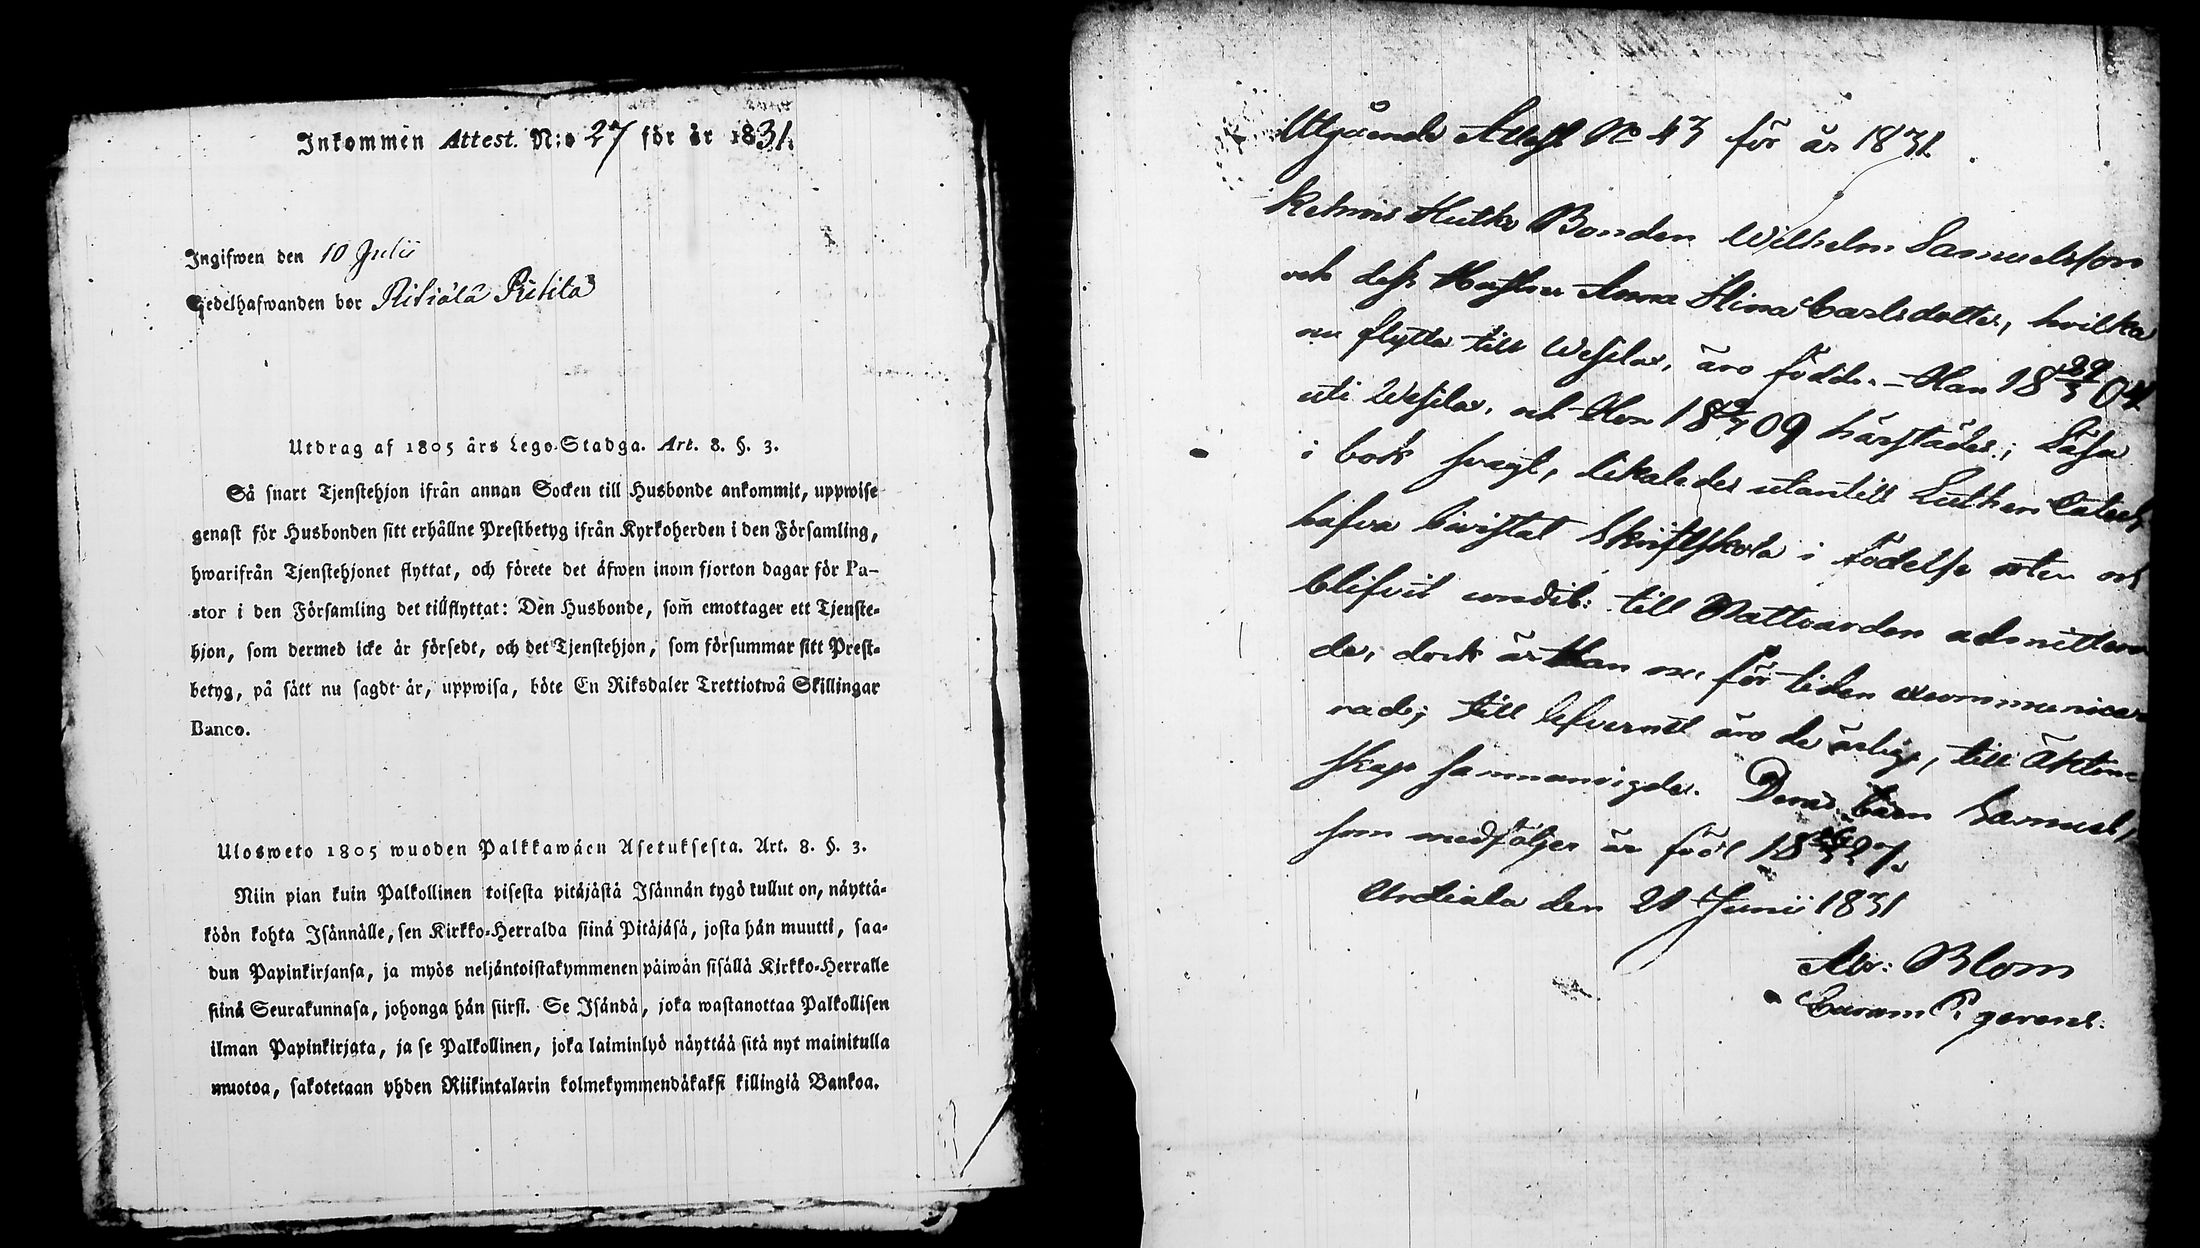 Inkommen Attest. N:o 27 för år 1831.
Ingifwen den 10 Julii
Sedelhafwanden bor
Utdrag af 1805 års Lego-Stadga. Art. 8. §. 3.
Så snart Tjenstehjon ifrån annan Socken till Husbonde ankommit, uppwise
genast för Husbonden sitt erhållne Prestbetyg ifrån Kyrkoherden i den Församling,
hwarifrån Tjenstehjonet flyttat, och förete det äfwen inom fjorton dagar för Pa-
stor i den Församling det tillflyttat: Den Husbonde, som̃ emottager ett Tjenste-
hjon, som dermed icke är försedt, och det Tjenstehjon, som försummar sitt Prest-
betyg, på sätt nu sagdt är, uppwisa, böte En Riksdaler Trettiotwå Skillingar
Banco.
Ulosweto 1805 wuoden Palkkawäen Asetuksesta. Art. 8. §. 3.
Niin pian kuin Palkollinen toisesta pitäjästä Isännän tygö tullut on, näyttä-
köön kohta Isännälle, sen Kirkko-Herralda siinä Pitäjäsä, josta hän muutti, saa-
dun Papinkirjansa, ja myös neljäntoistakymmenen päiwän sisällä Kirkko-Herralle
siinä Seurakunnasa, johonga hän siirsi. Se Isändä, joka wastanottaa Palkollisen
ilman Papinkirjata, ja se Palkollinen, joka laiminlyö näyttää sitä nyt mainitulla
muotoa, sakotetaan yhden Riikintalarin kolmekymmendäkaksi killingiä Bankoa.
Utgående Attest No 43 för år 1831.
Bonden Wilhelm Samuelsson
och dess Hustru Anna Stina Carlsdotter, hvilka
nu flytta till Wesilax, äro födde. - Han 18 29/3 04
uti Wesilax, och Hon 18 09 härstädes; Läsa
i bok svagt, likaledes utantill Lutheri Catech
hafva bivistat Skriftskola i födelse orten och
blifvit condit: till Nattvarden admittera
de, dock är Han nu för tiden excommunice-
rad; till lefvernet äro de ärlige, till Äkten-
skap sammanvigde. Deras barn Samuel,
som medföljer är född 18 27.
Urdiala den 21 Junii 1831
Abr: Blom
P. gerens.